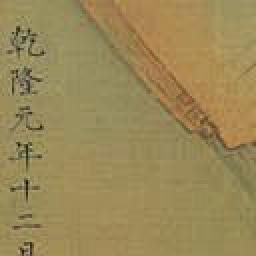 乾隆元年十二月